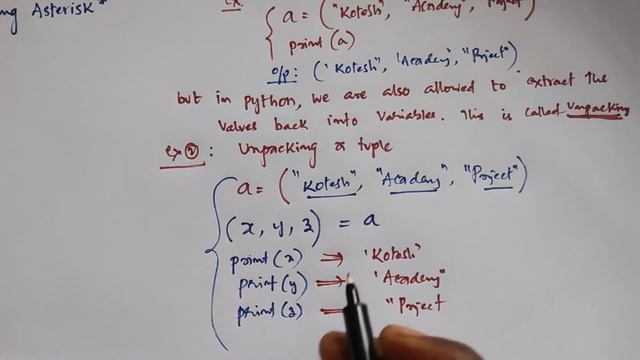 ng Asterisk*
Ex
a = ("Kotesh", "Academy", Project")
print (a)
o/p: ('Kotesh", 'Academy', "Project")
but in python, we are also allowed to extract the
values back into variables. This is called unpacking
Ex ② : Unpacking a tuple
a = ("Kotesh", "Academy", "Project")
(x, y, z) = a
print (x) ⇒ 'Kotesh'
print (y) ⇒ 'Academy"
print (z) "Project